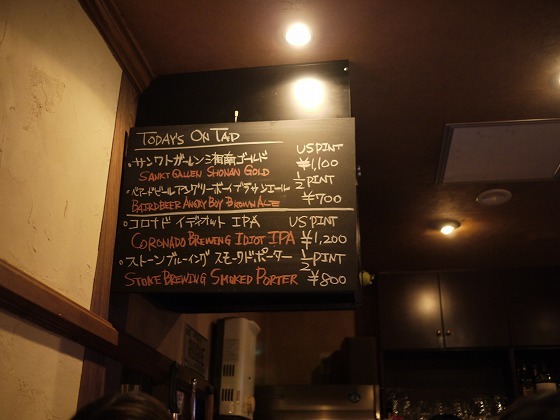 TODAY'S ON TAP
・サンクトガーレン湘南ゴールド US PINT
SANKT GALLEN SHONAN GOLD ¥1,100
・ベアードビールアングリーボーイブラウンエール 1/2 PINT
BAIRD BEER ANGRY BOY BROWN ALE ¥700
・コロナド イディオット IPA US PINT
CORONADO BREWING IDIOT IPA ¥1,200
・ストーンブルーイング スモークドポーター 1/2 PINT
STONE BREWING SMOKED PORTER ¥800